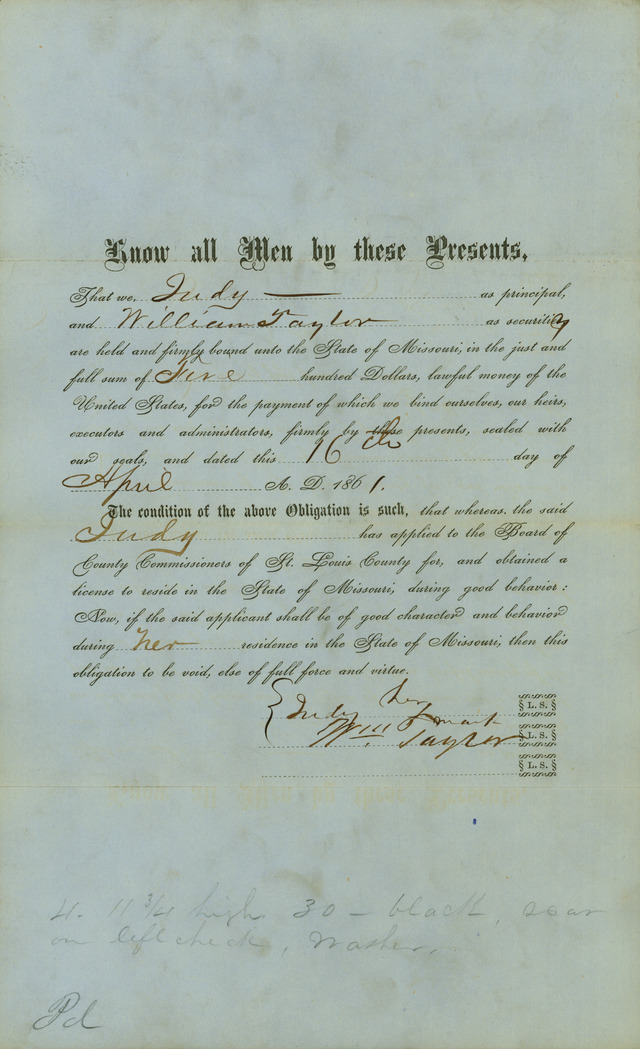 Know all Men by these Presents,
That we, Judy as principal,
and William Taylor as security
are held and firmly bound unto the State of Missouri, in the just and
full sum of Five hundred Dollars, lawful money of the
United States, for the payment of which we bind ourselves, our heirs,
executors and administrators, firmly by these presents, sealed with
our seals, and dated this 16th day of
April A. D. 1861.
The condition of the above Obligation is such, that whereas, the said
Judy has applied to the Board of
County Commissioners of St. Louis County for, and obtained a
license to reside in the State of Missouri, during good behavior:
Now, if the said applicant shall be of good character and behavior
during her residence in the State of Missouri, then this
obligation to be void, else of full force and virtue.
Judy her mark L. S.
Wm Taylor L. S.
L. S.
4. 11 3/4 high 30 – black, scar
on left cheek, washer,
Pd